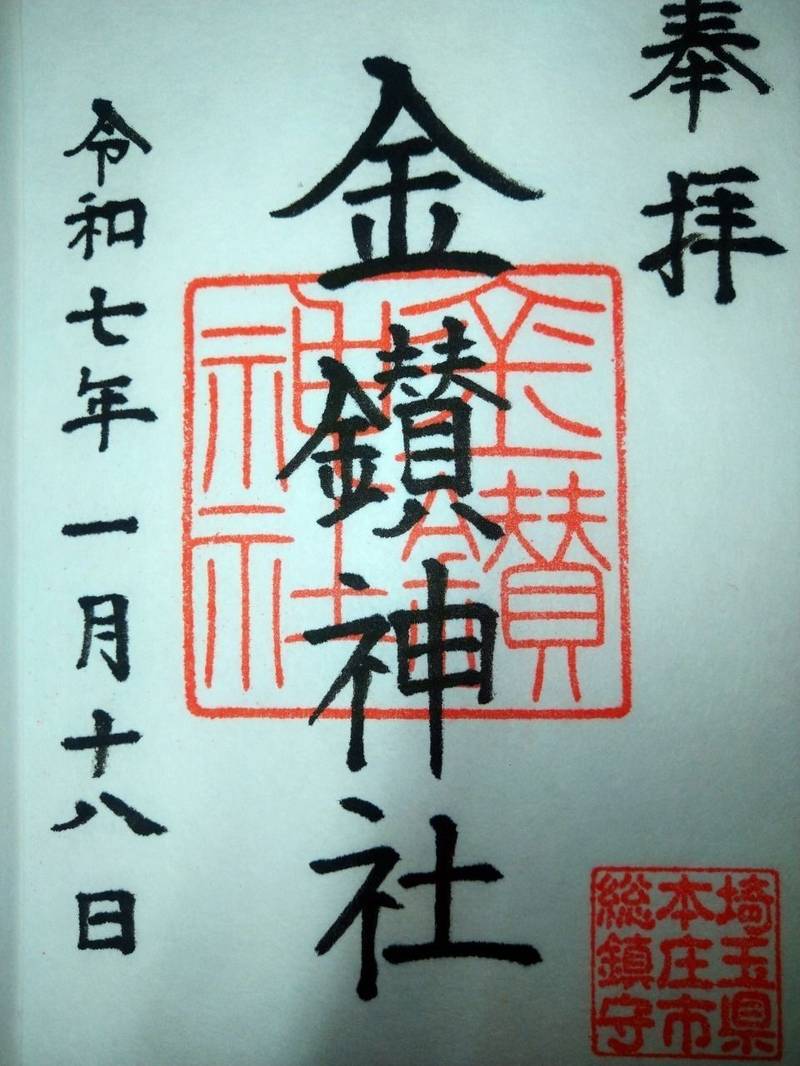 奉拝
金鑚神社
令和七年一月十八日
埼玉県
本庄市
総鎮守